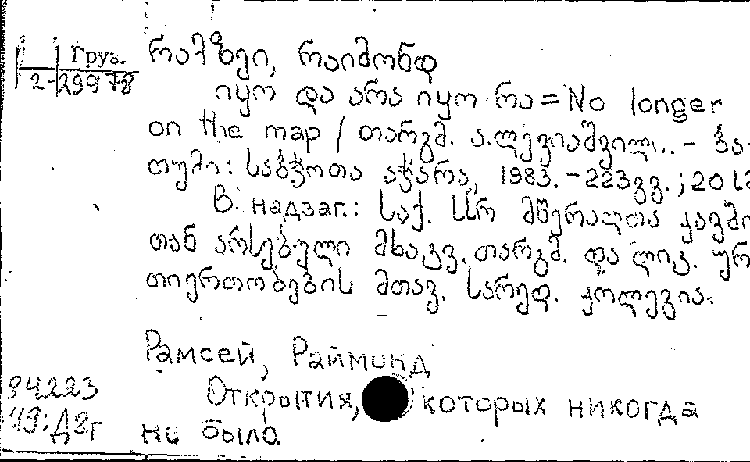 Груз.
2-29978
რამზეი, რაიმონდ
იყო და არა იყო რა = No longer
on the map / თარგმ. ა.ლევიაშვილი.. - ბა-
თუმი: საბჭოთა აჭარა, 1983. - 223გვ.; 20
В надзаг.: საქ. სსრ მწერალთა კავში
თან არსებული მხატვ. თარგმ. და ლიტ. ურ
თიერთობების მთავ. სარედ. კოლეგია.
Рамсей, Раймонд
Открытия, которых никогда
не было.
94223
49: Д8г